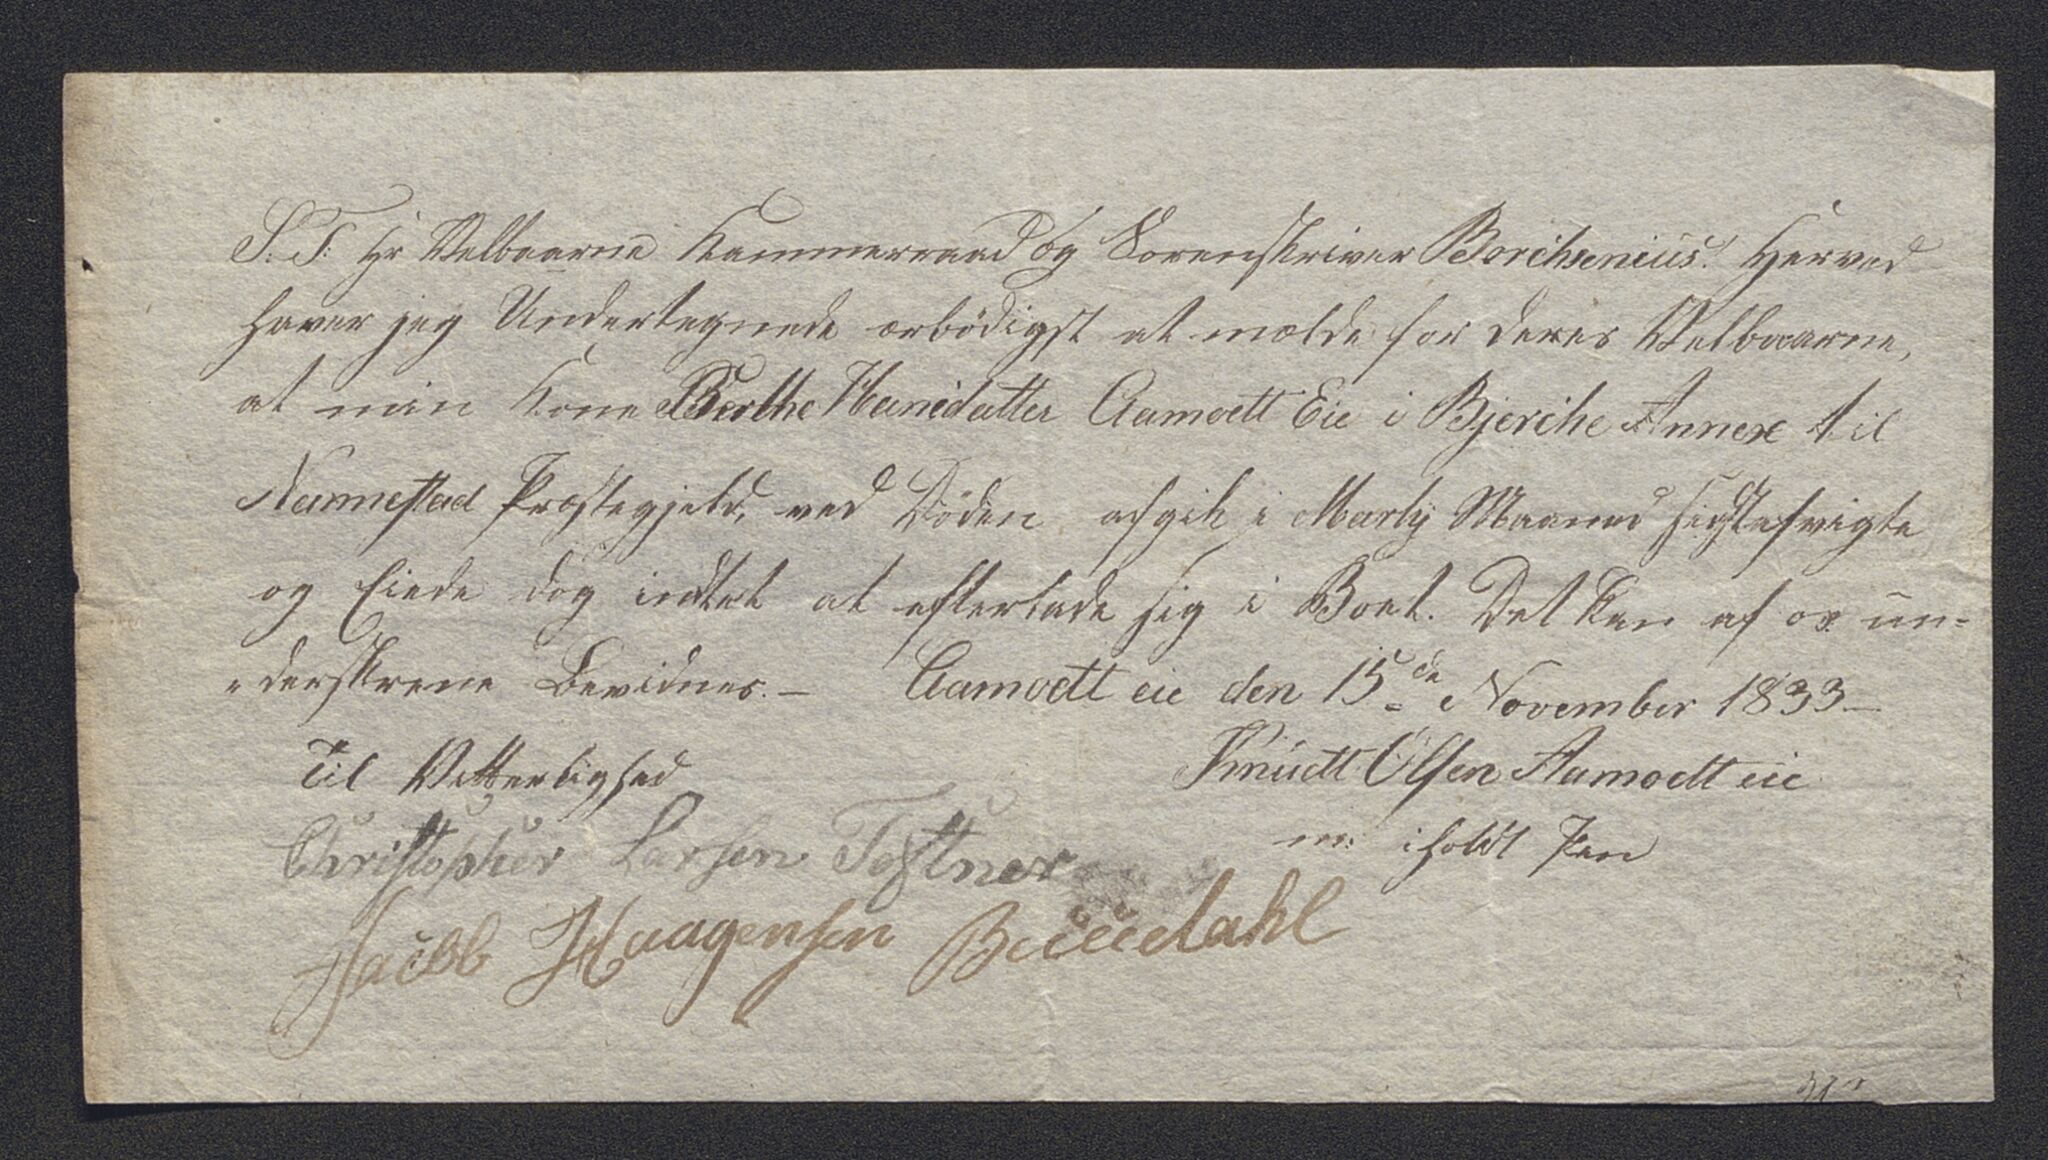 S. T. Hr Velbaarne Kammerraad og Sorenskriver Borchsenius! Herved
haver jeg Undertegnede ærbödigst at mælde for deres Velbaarne,
at min Kone Berthe Hansdatter Aamoett Eie i Bjerche Annex til
Nannestad Præstegjeld, ved Döden afgik i Martij Maaned sidstafvigte
og Eiede dog indtet at efterlade sig i Boet. Det kan af os un-
derskrevne Bevidnes. – Aamoett eie den 15de November 1833 –
Til Vitterlighed Knudt Olsen Aamoett eie
Christopher Larsen m: iholdt Pen
Jacob Haagensen